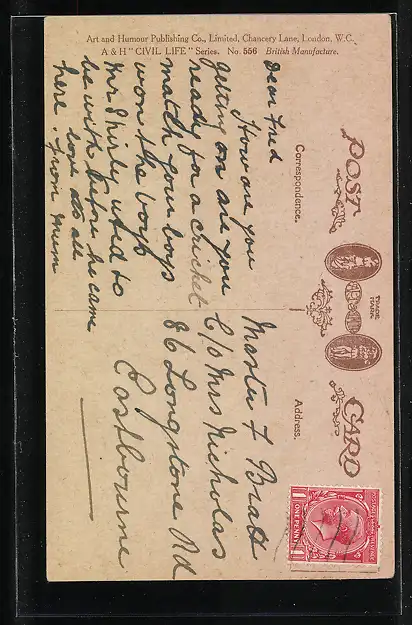 Art and Humour Publishing Co., Limited, Chancery Lane, London, W.C.
A & H "CIVIL LIFE" Series. No. 556 British Manufacture.
POST CARD
TRADE MARK
Correspondence.
Address.
Dear Fred
How are you
getting on are you
ready for a cricket
match your boys
won the boys
Mr Shirly used to
be with before he came
here. love to all
from Mum
Master F Bratt
C/o Mrs Nicholas
86 Longstone Rd
Eastbourne
ONE PENNY